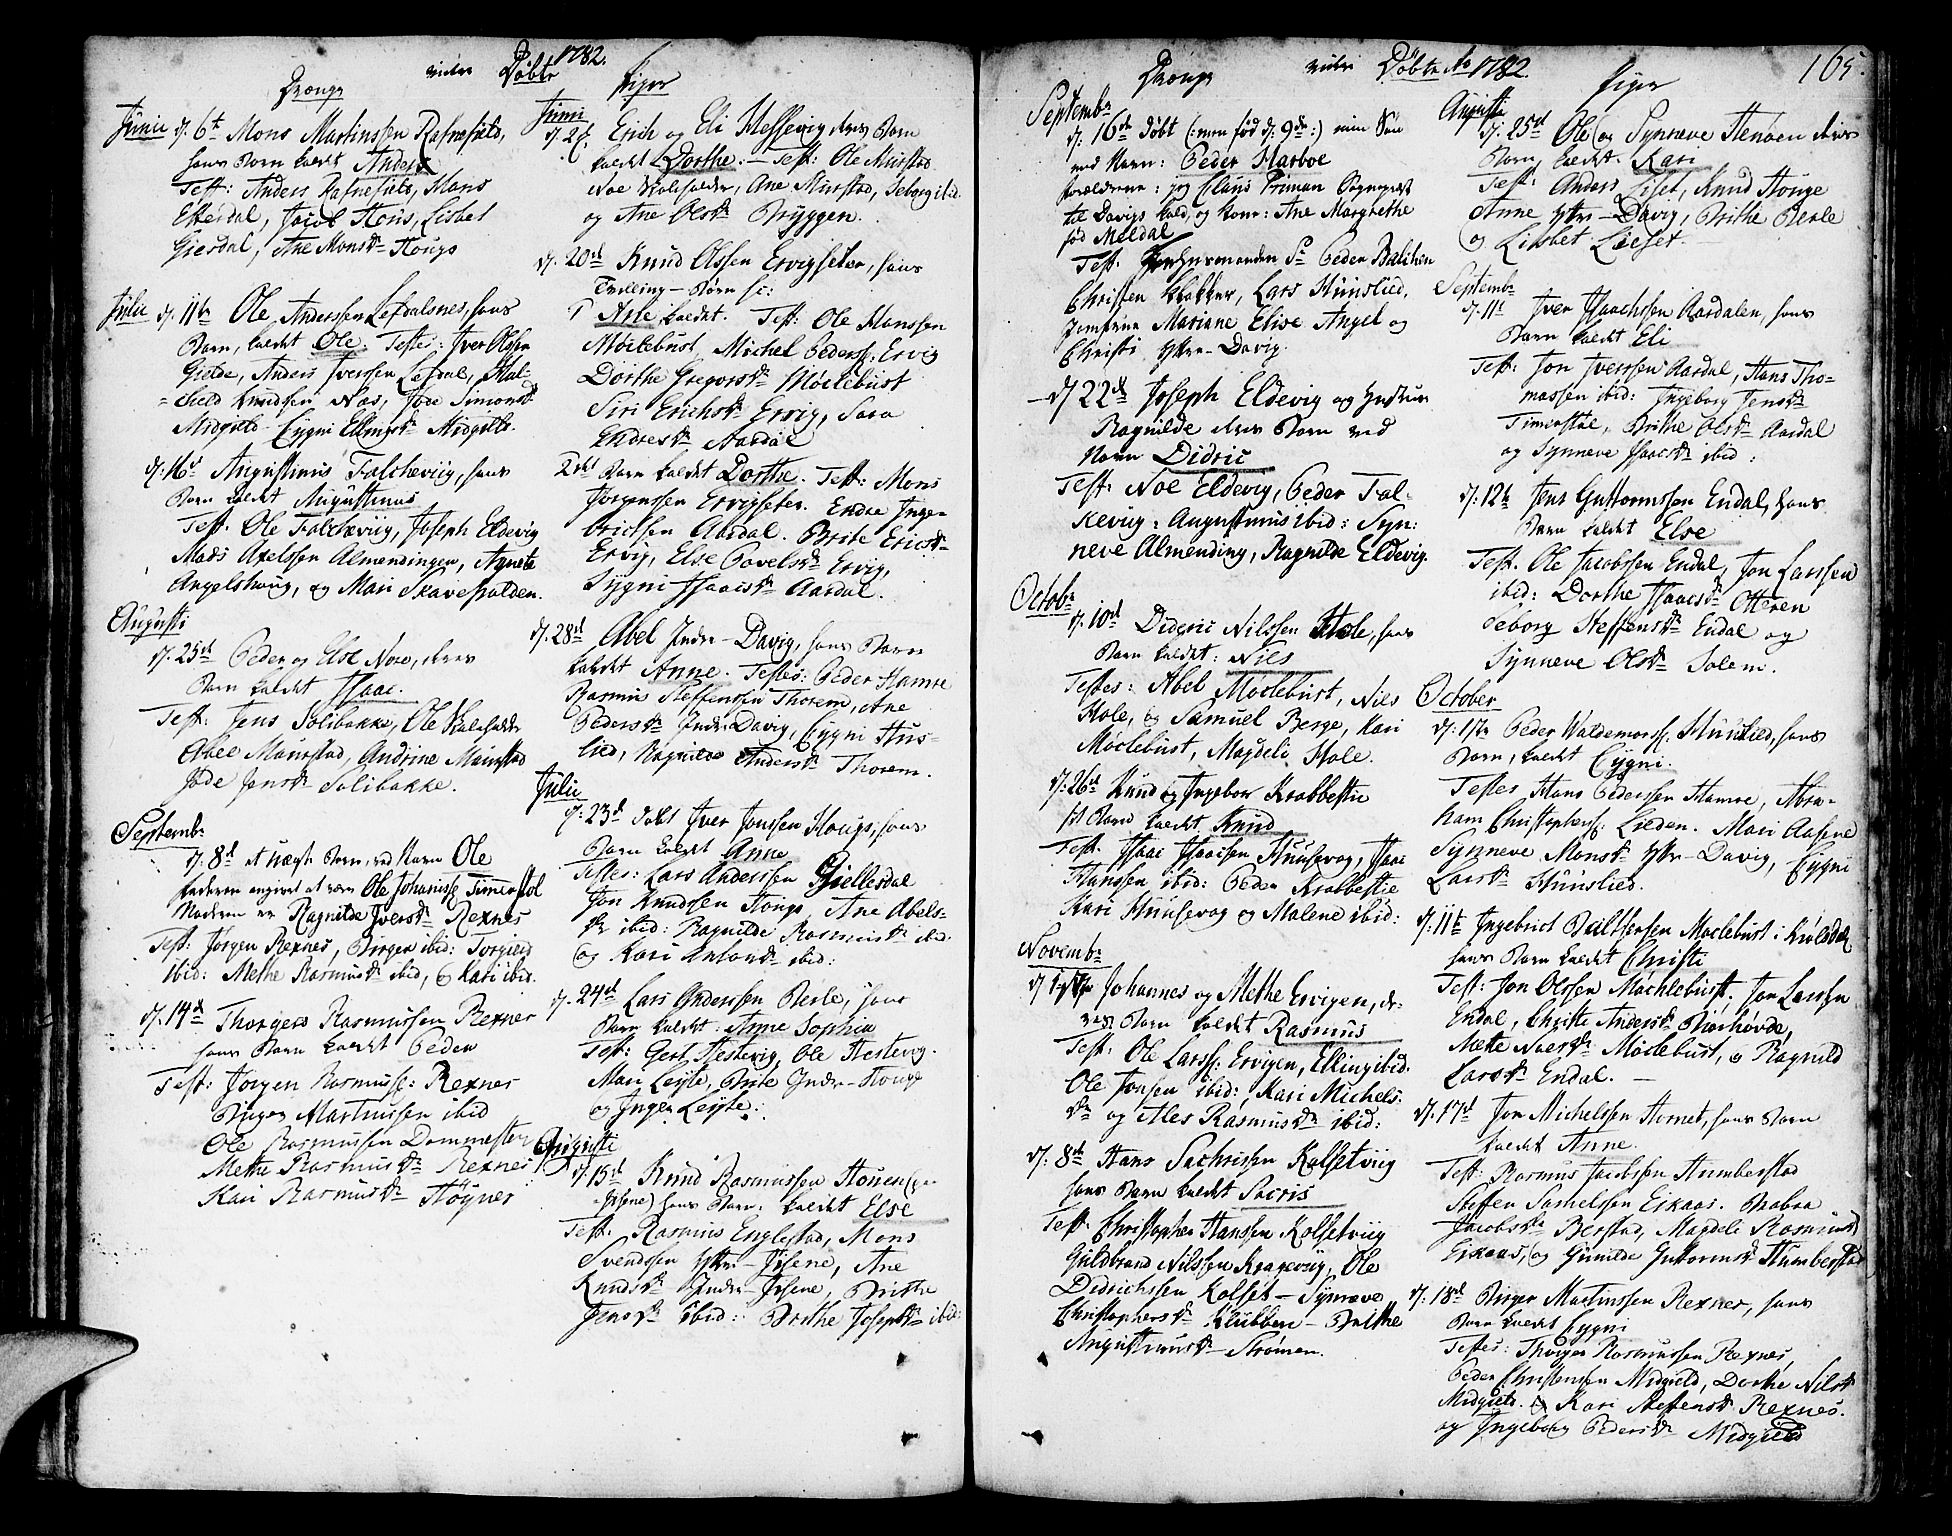 ægte Døbte 1782.
Drenge
Junii d. 6t Mons Martinssen Rafnefiels,
hans Barn kaldt Anders
Test: Anders Rafnefiels, Mons
Elledal, Jacob Hens, Lisbet
Giesdal, Ane Monsdr Houge
Julii d. 11te Ole Anderssen Lefdalsnes, hans
Barn, kaldt Ole. Testes: Iver Olssen
Gielde, Anders Iverssen Lefdal, Hal-
Knudsen Næs, Simonsdr
Midgield Sygni Ellingsdr Midgield.
d. 16d Augustinus Falchevüg, hans
Barn kaldt Augustinus
Test. Ole Falchevüg, Joseph Eldevig
Mads Axelssen Almendingen, Agnete
Angelshaug, og Mari Skavepolden.
Augusti
d. 25d Peder og Else Nore, deres
Barn kaldt Isaac.
Test: Jens Solibakke, Ole
Abel Maurstad, Andrine Maurstad
Jensdr Solibakke.
Septembr
d. 8d et uægte Barn, ved Navn Ole
Faderen angivet at være Ole Johanss: Timenstol
Moderen er Ragnilde Iversdr Rexnes
Test: Jørgen Rexnes, Birger ibid: Torgierd
ibid: Methe Rasmusdr ibid, og Kari ibid.
d. 14d Thorgerd Rasmussen Rexnes
hans Barn kaldt Peder
Test: Jørgen Rasmuss: Rexnes
Birger Martinssen ibid
Ole Rasmussen Dommesten
Methe Rasmusdr Rexnes
Kari Rasmusdr Høyner
Piger
Junii
d. 2d. Erich og Eli Hessevig deres Barn
kaldt Dorthe. Test: Ole Murstad
Noe, Ane Murstad, Seborg ibid.
og Ane Olsdr Bryggen.
d. 20d Knud Olssen Ervigseter, hans
Tvilling-Børn
1 Asle kaldt. Test: Ole Hanssen
Møclebust, Michel Pederss: Ervig
Dorthe Gregorsdr Møclebust
Siri Erichsdr Ervig, Sara
Endresdr Aardal
2det Barn kaldt Dorthe. Test: Mons
Jørgenssen Ervigseter. Endre Inge-
brictsen Aardal. Brite Ericsdr
Ervig, Else Povelsdr Ervig,
Sygni Isaacsdr Aardal.
d. 28d Abel Indre-Davig, hans Barn
kaldt Anne. Testes: Peder Hamre
Rasmus Steffenssen Thorem, Ane
Pedersdr Indre Davig, Sygni Hus-
lied, Ragnilde Andersdr Thorem.
Julii
d: 23d døbt Iver Jonssen Houge, hans
Barn kaldt Anne
Testes: Lars Anderssen Gjellesdal
Jon Knudssen Houge, Ane Abels-
dr ibid: Ragnilde Rasmusdr ibid:
og Kari Antondr ibid:
d. 24d Lars Anderssen Berle, hans
Barn kaldt: Anne Sophia
Test: Gert Hestevig, Ole Hestevig.
Mari Leyte, Brite Indre-Houge
og Inger Leyte:
Augusti
d. 15d Knud Rasmussen Houen
hans Barn, kaldt Else
Test: Rasmus Englestad, Mons
Svendssen Ytre-Jisene, Ane
Knudsdr Indre-Jisene, Brithe
Jensdr ibid: Brithe Josephdr ibid:
Drenge ægte Døbte Ao 1782. Piger 165.
Septembr
d. 16de døbt (: men fød d. 9de :) min Søn
med Navn: Peder Harboe
Forældrene: jeg Claus Friman Sognepræst
til Davigs Kald, og Kone: Ane Margrethe
fød Meldal
Test: Sr Peder Balchen
Christen Klokker, Lars Hunslied,
Jomfrue Mariane Elise Angel og
Christi Ytre-Davig.
d 22d Joseph Eldevig og Hustrue
Ragnilde deres Barn ved
Navn Didric
Test: Noe Eldevig, Peder Fal-
kevüg: Augustinus ibid: Syn-
neve Almending, Ragnilde Eldevig.
Octobr
d. 10d Dideric Nilssen Hole, hans
Barn kaldt: Nils
Testes: Abel Moclebust, Niels
Hole, og Samuel Berge, Kari
Møclebust, Magdeli Hole.
d. 26d Knud og Ingebor Krabbestie
Barn kaldt Knud
Test. Isaac Isaacsen Huusevog, Isaac
Hanssen ibid: Peder Krabbestie
Kari Huusevog og Malene ibid:
Novembr
d 1 Johannes og Methe Ervigen, de-
res Barn kaldt Rasmus
Test: Ole Larss: Ervigen, Elling ibid.
Ole Jonsen ibid: Kari Michels-
dr og Ales Rasmusdr ibid:
d. 8d Hans Sachrissen Kolsetvüg
hans Barn kaldt Sacris
Test. Christopher Hanssen Kolsetvüg
Guldbrand Nilssen Kragevüg, Ole
Didrichssen Kolset – Synneve
Christophersdr Klubben – Brithe
Augustinusdr – Strømen.
Augusti
d. 25d Ole og Synneve Henøen deres
Barn, kaldt. Kari
Test: Anders Liset, Knud Houge
Anne Ytre-Davig, Brithe Berle
og Lisbet Lieset.
Septembr
d. 11t Iver Isaachssen Aardalen, hans
Barn kaldt Eli
Test: Jon Iverssen Aardal, Hans Tho-
massen ibid: Ingeborg Jensdr
Timenstøl, Brithe Olsdr Aardal
og Synneve Isaacsdr ibid:
d. 12te Jens Guttormssen Endal, hans
Barn kaldt Else
Test. Ole Jacobssen Endal, Jon Larssen
ibid: Dorthe Isaacsdr Otteren
Seborg Steffensdr Endal og
Synneve Olsdr Solem.
October
d. 1ste Peder Waldemorss: Hunslied, hans
Barn, kaldt Sygni.
Testes Hans Pederssen Hamre, Abra-
ham Christophers: Lieden. Mari Aasene
Synneve Monsdr Ytre-Davig, Sygni
Larsdr Hunslied.
d. 11te Ingebrict Balthersen Moclebust i Hiølsdal
hans Barn kaldt Christi
Test: Jon Olssen Møchlebust. Jon Larssen
Endal, Christi Andersdr Biørhovde,
Mette Noesdr Møclebust, og Ragnild
Larsdr Endal. –
d. 17d Jon Michelssen Hornet, hans Barn
kaldt Anne.
Test: Rasmus Jacobssen Humberstad
Steffen Samelssen Eikaas. Barbra
Jacobsdr Berstad, Magdeli Rasmusdr
Eikaas, og Gunilde Guttormsdr Humberstad
d. 18d Birger Martinssen Rexnes, hans
Barn kaldt Sygni
Testes: Thorger Rasmussen Rexnes,
Peder Christensen Midgield, Dorthe Nilsdr
Midgield. og Kari Steffensdr Rexnes.
og Ingeborg Pedersdr Midgield